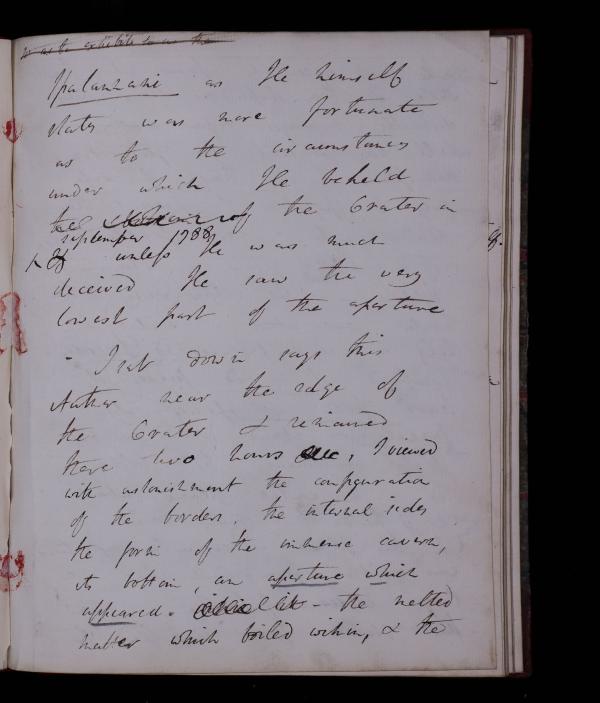 so as to exhibit to us the
Spalanzani as He himself
states was more fortunate
as to the circumstances
under which He beheld
the of the Crater in
september 1788
unless He was much
deceived He saw the very
lowest part of the aperture
- I sat down says this
Author near the edge of
the Crater & remained
there two hours, I viewed
with astonishment the configuration
of the borders, the internal sides
the form of the immense cavern,
its bottom, an aperture which
appeared - the melted
matter which boiled within, & the